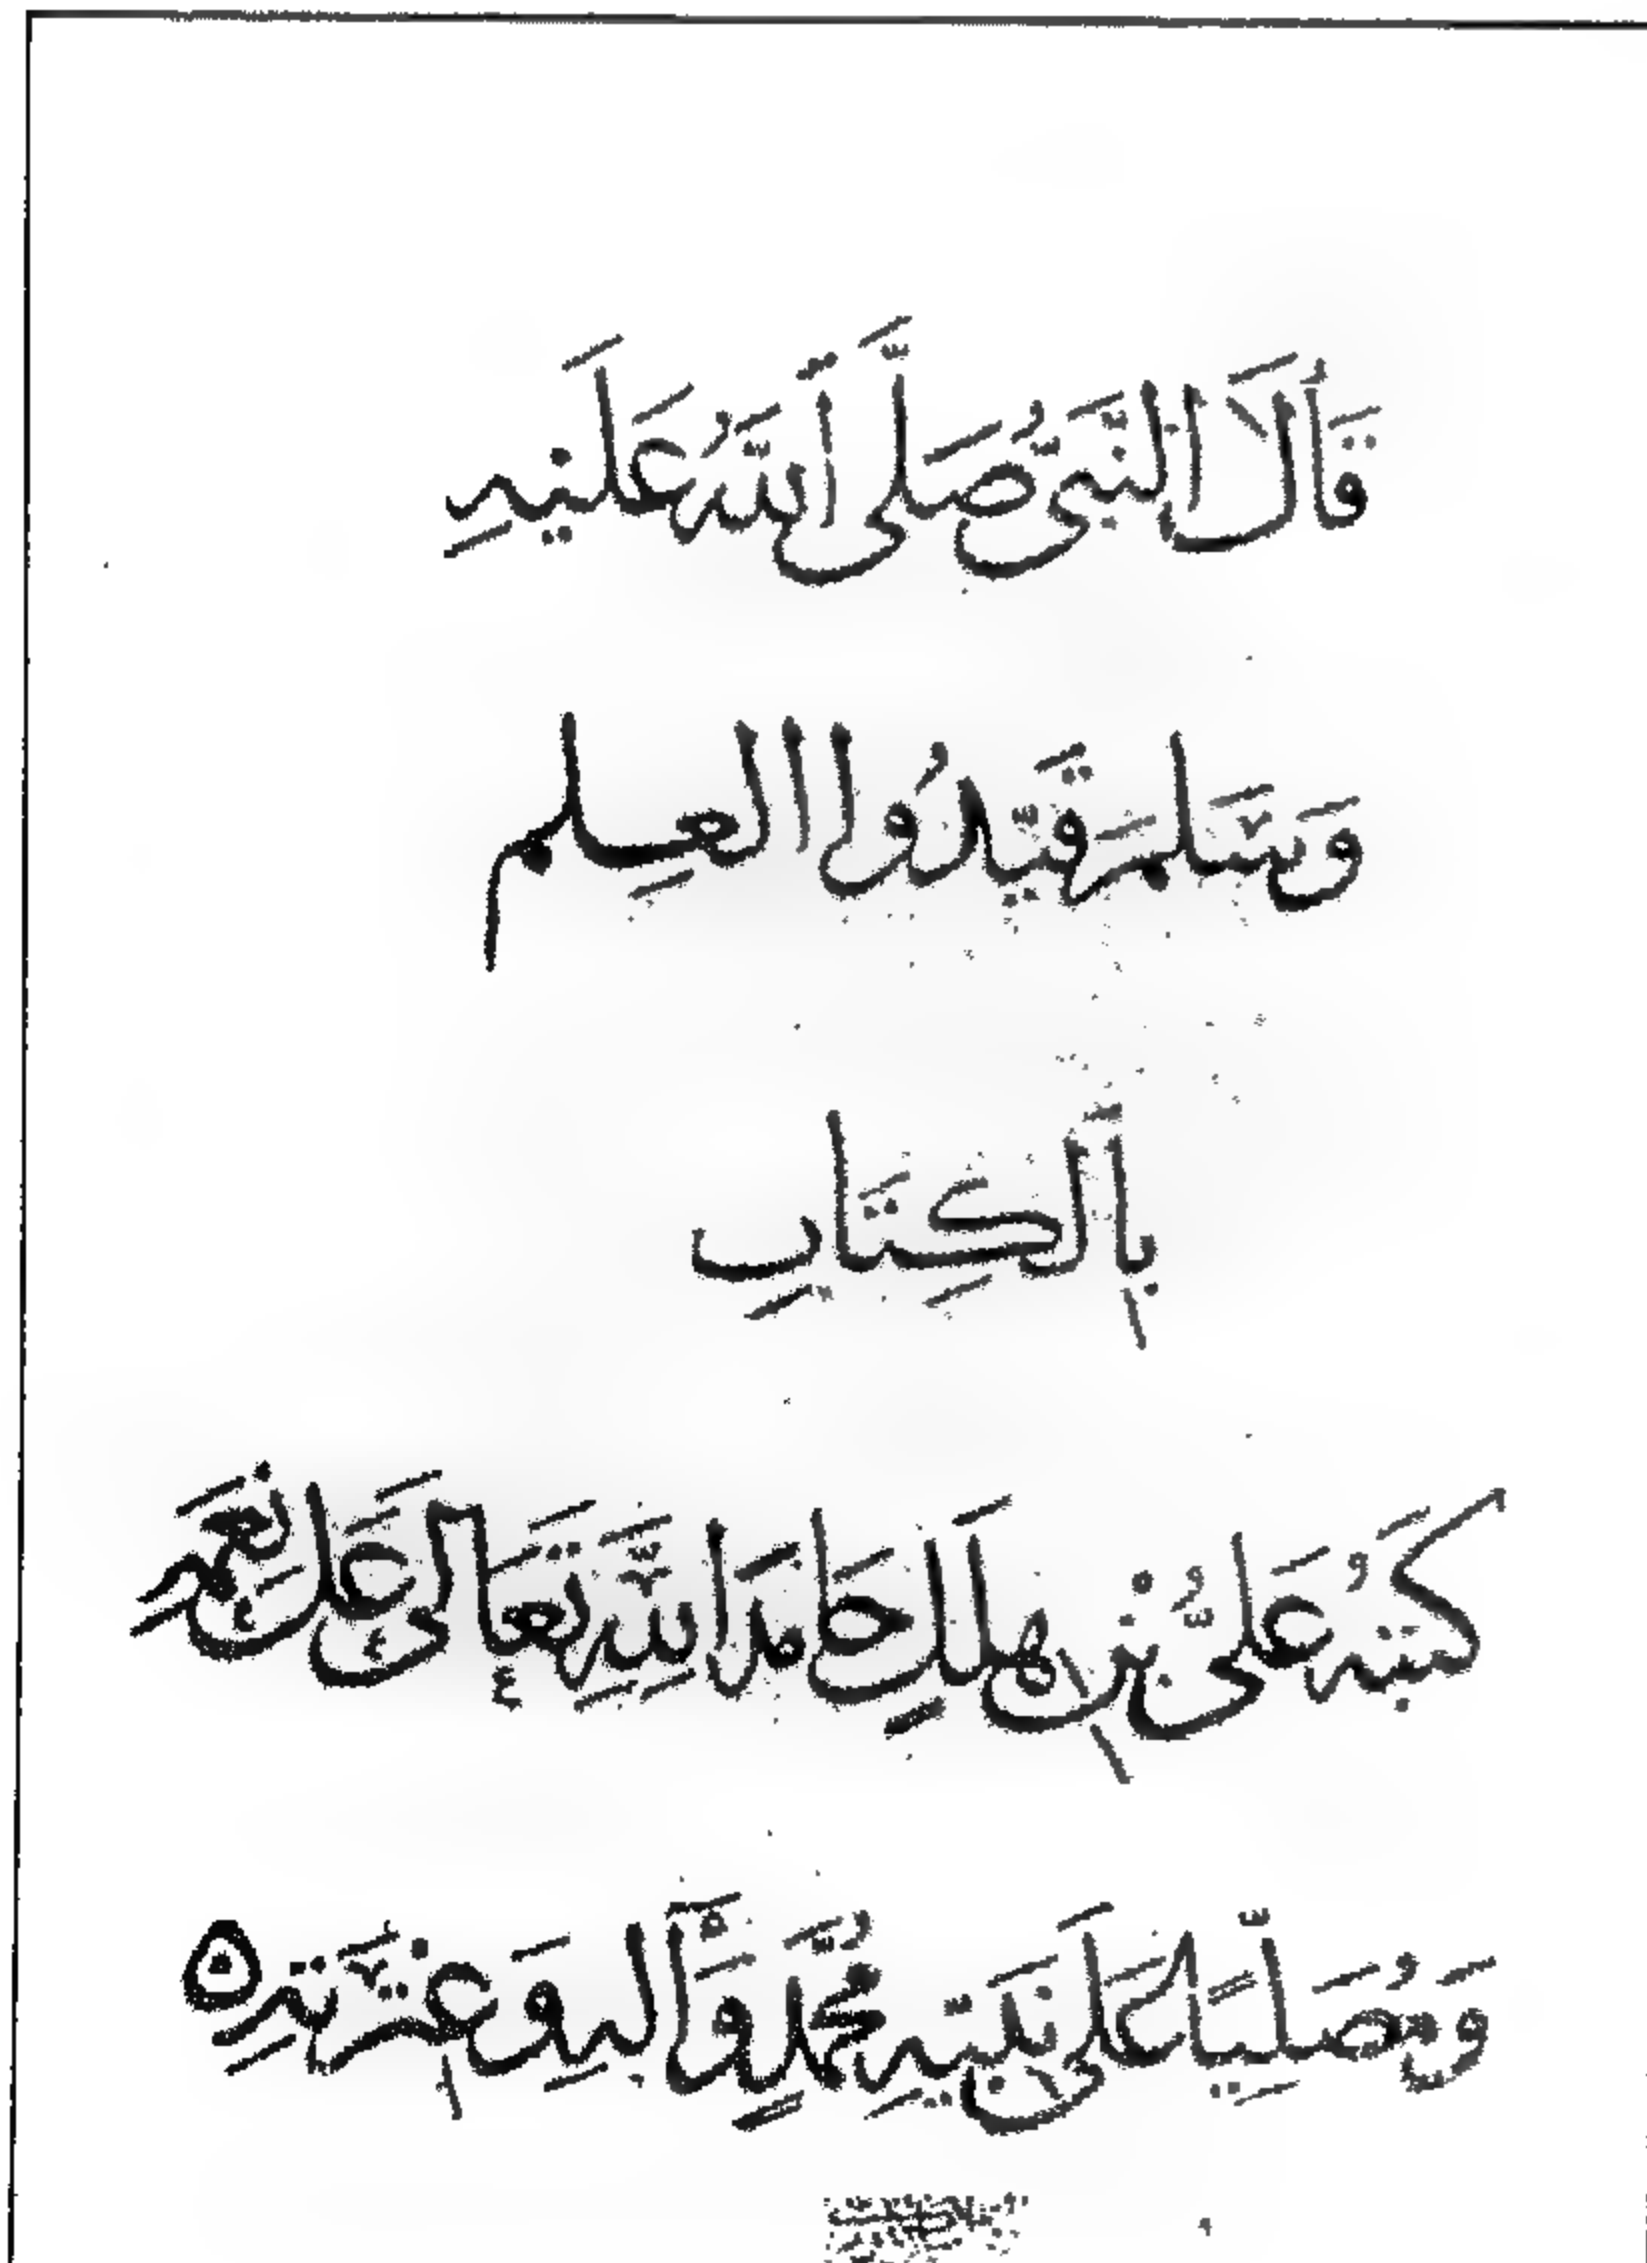 قَالَ النَّبِيُّ صَلَّى اللَّهُ عَلَيْهِ
وَسَلَّمَ قَيِّدُوا العِلم
بِالْكِتَابِ
كَتَبَهُ عَلِيُّ بْنُ هِلَالٍ حَامِدًا لِلَّهِ تَعَالَى عَلَى نِعَمِهِ
وَمُصَلِّيًا عَلَى نَبِيِّهِ مُحَمَّدٍ وَآلِهِ وَعِتْرَتِهِ